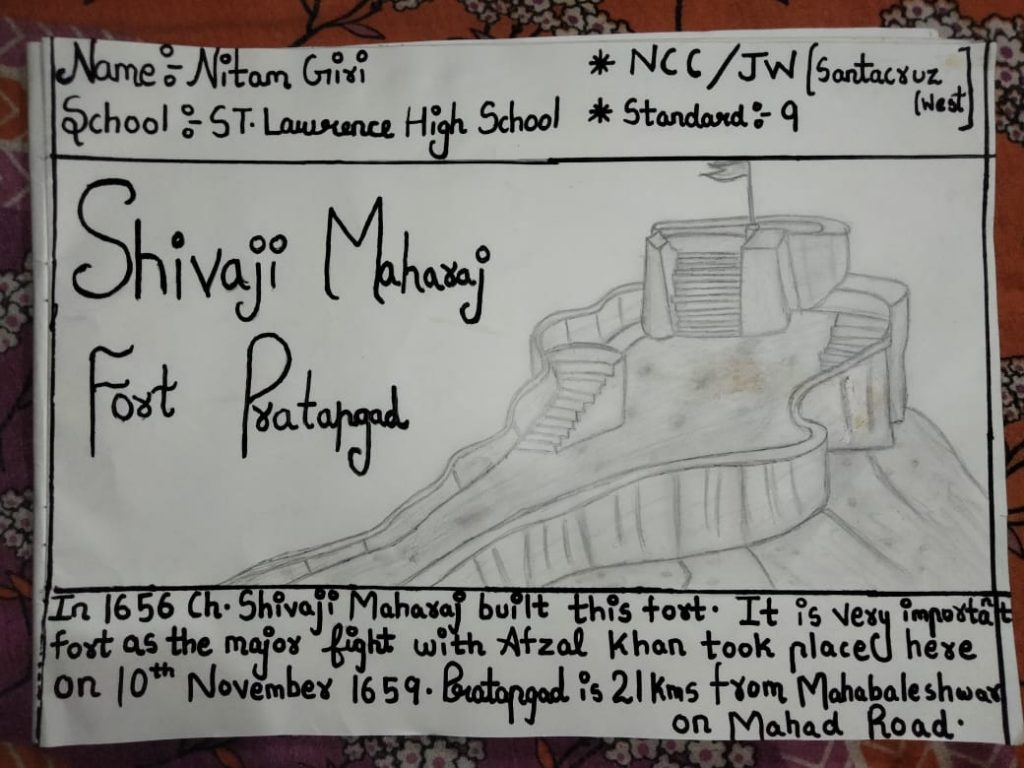 Name :- Nitam Giri
School :- ST. Lawrence High School
* NCC/JW [Santacruz (West)]
* Standard :- 9
Shivaji Maharaj
Fort Pratapgad
In 1656 Ch. Shivaji Maharaj built this fort. It is very important
fort as the major fight with Afzal Khan took placed here
on 10th November 1659. Pratapgad is 21kms from Mahabaleshwar
on Mahad Road.